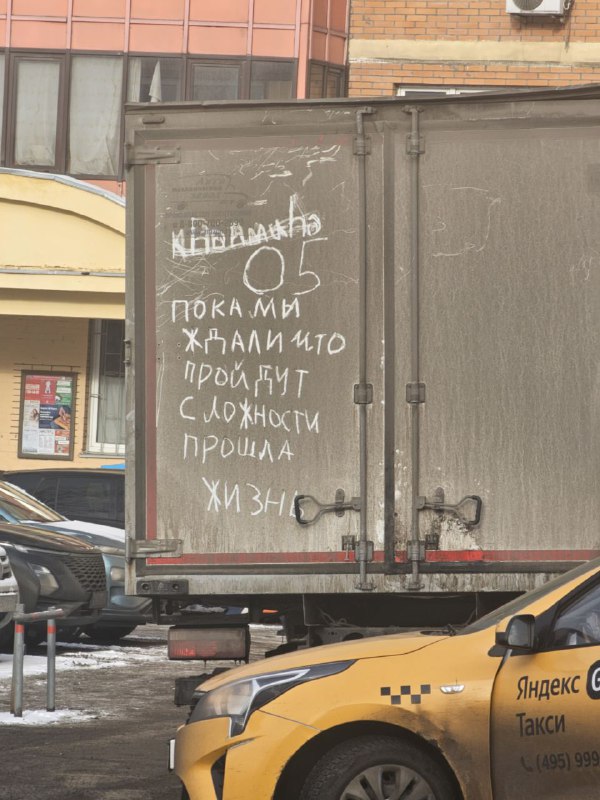 05
ПОКА МЫ
ЖДАЛИ ЧТО
ПРОЙДУТ
СЛОЖНОСТИ
ПРОШЛА
ЖИЗНЬ
Яндекс
Такси
(495) 999